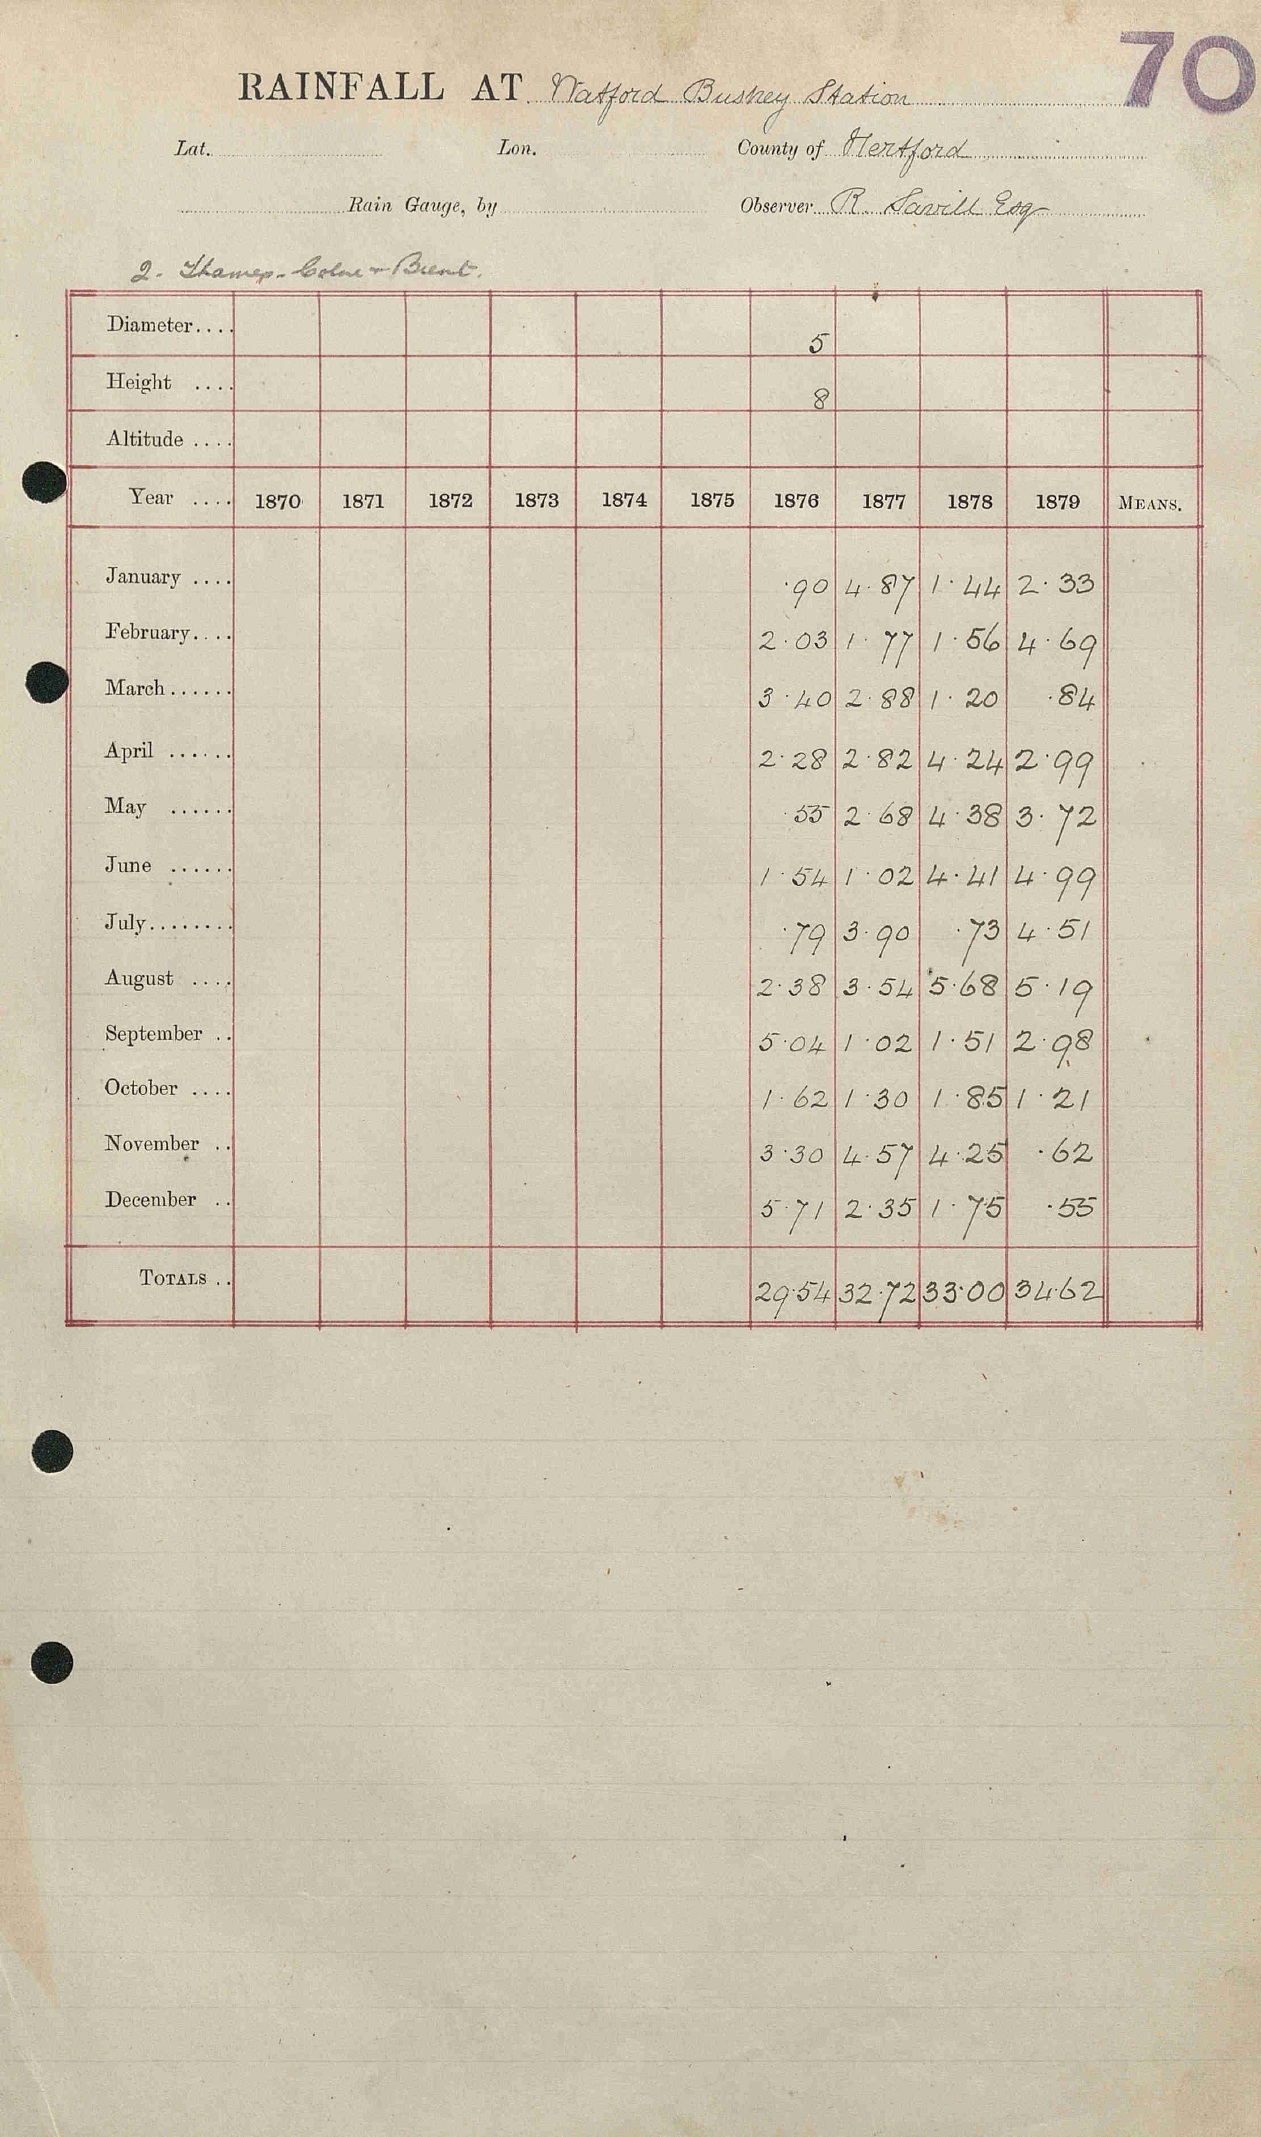 70
RAINFALL AT Watford Bushey Station
Lat. Lon. County of Hertford
Rain Gauge, by Observer R. Savill Esq
2. Thames - Colne & Brent.
Diameter.... 5
Height .... 8
Altitude ....
Year .... 1870 1871 1872 1873 1874 1875 1876 1877 1878 1879 MEANS.
January .... ·90 4·87 1·44 2·33
February.... 2·03 1·77 1·56 4·69
March...... 3·40 2·88 1·20 ·84
April ...... 2·28 2·82 4·24 2·99
May ...... ·55 2·68 4·38 3·72
June ...... 1·54 1·02 4·41 4·99
July........ ·79 3·90 ·73 4·51
August .... 2·38 3·54 5·68 5·19
September .. 5·04 1·02 1·51 2·98
October .... 1·62 1·30 1·85 1·21
November .. 3·30 4·57 4·25 ·62
December .. 5·71 2·35 1·75 ·55
TOTALS .. 29·54 32·72 33·00 34·62